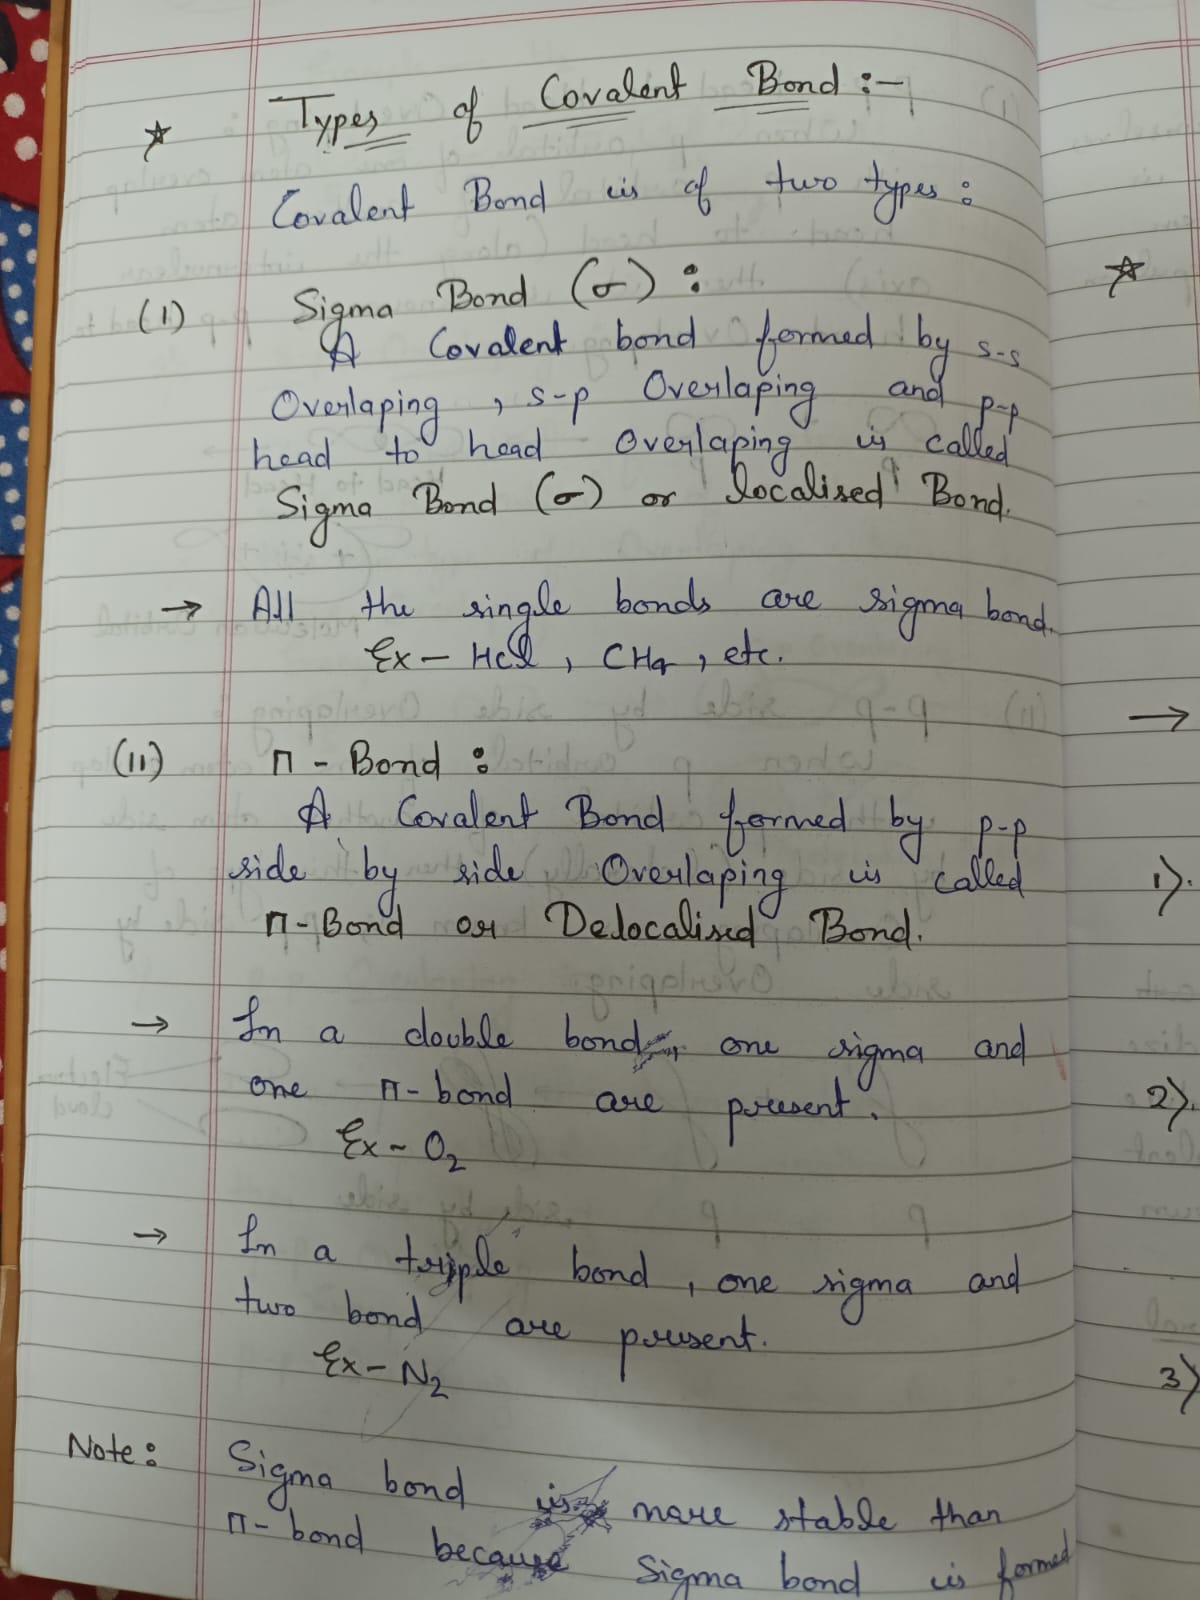 ☆ Types of Covalent Bond :-
Covalent Bond is of two types :
(I) Sigma Bond (σ) :
A Covalent bond formed by s-s
Overlaping , s-p Overlaping and p-p
head to head Overlaping is called
Sigma Bond (σ) or localised Bond.
→ All the single bonds are sigma bond.
Ex – HCl , CH4 , etc.
(II) π - Bond :
A Covalent Bond formed by p-p
side by side Overlaping is called
π-Bond or Delocalised Bond.
→ In a double bond , one sigma and
one π-bond are present.
Ex – O2
→ In a triple bond , one sigma and
two bond are present.
Ex – N2
Note : Sigma bond is more stable than
π-bond because Sigma bond is formed
☆
→
1).
2).
3)